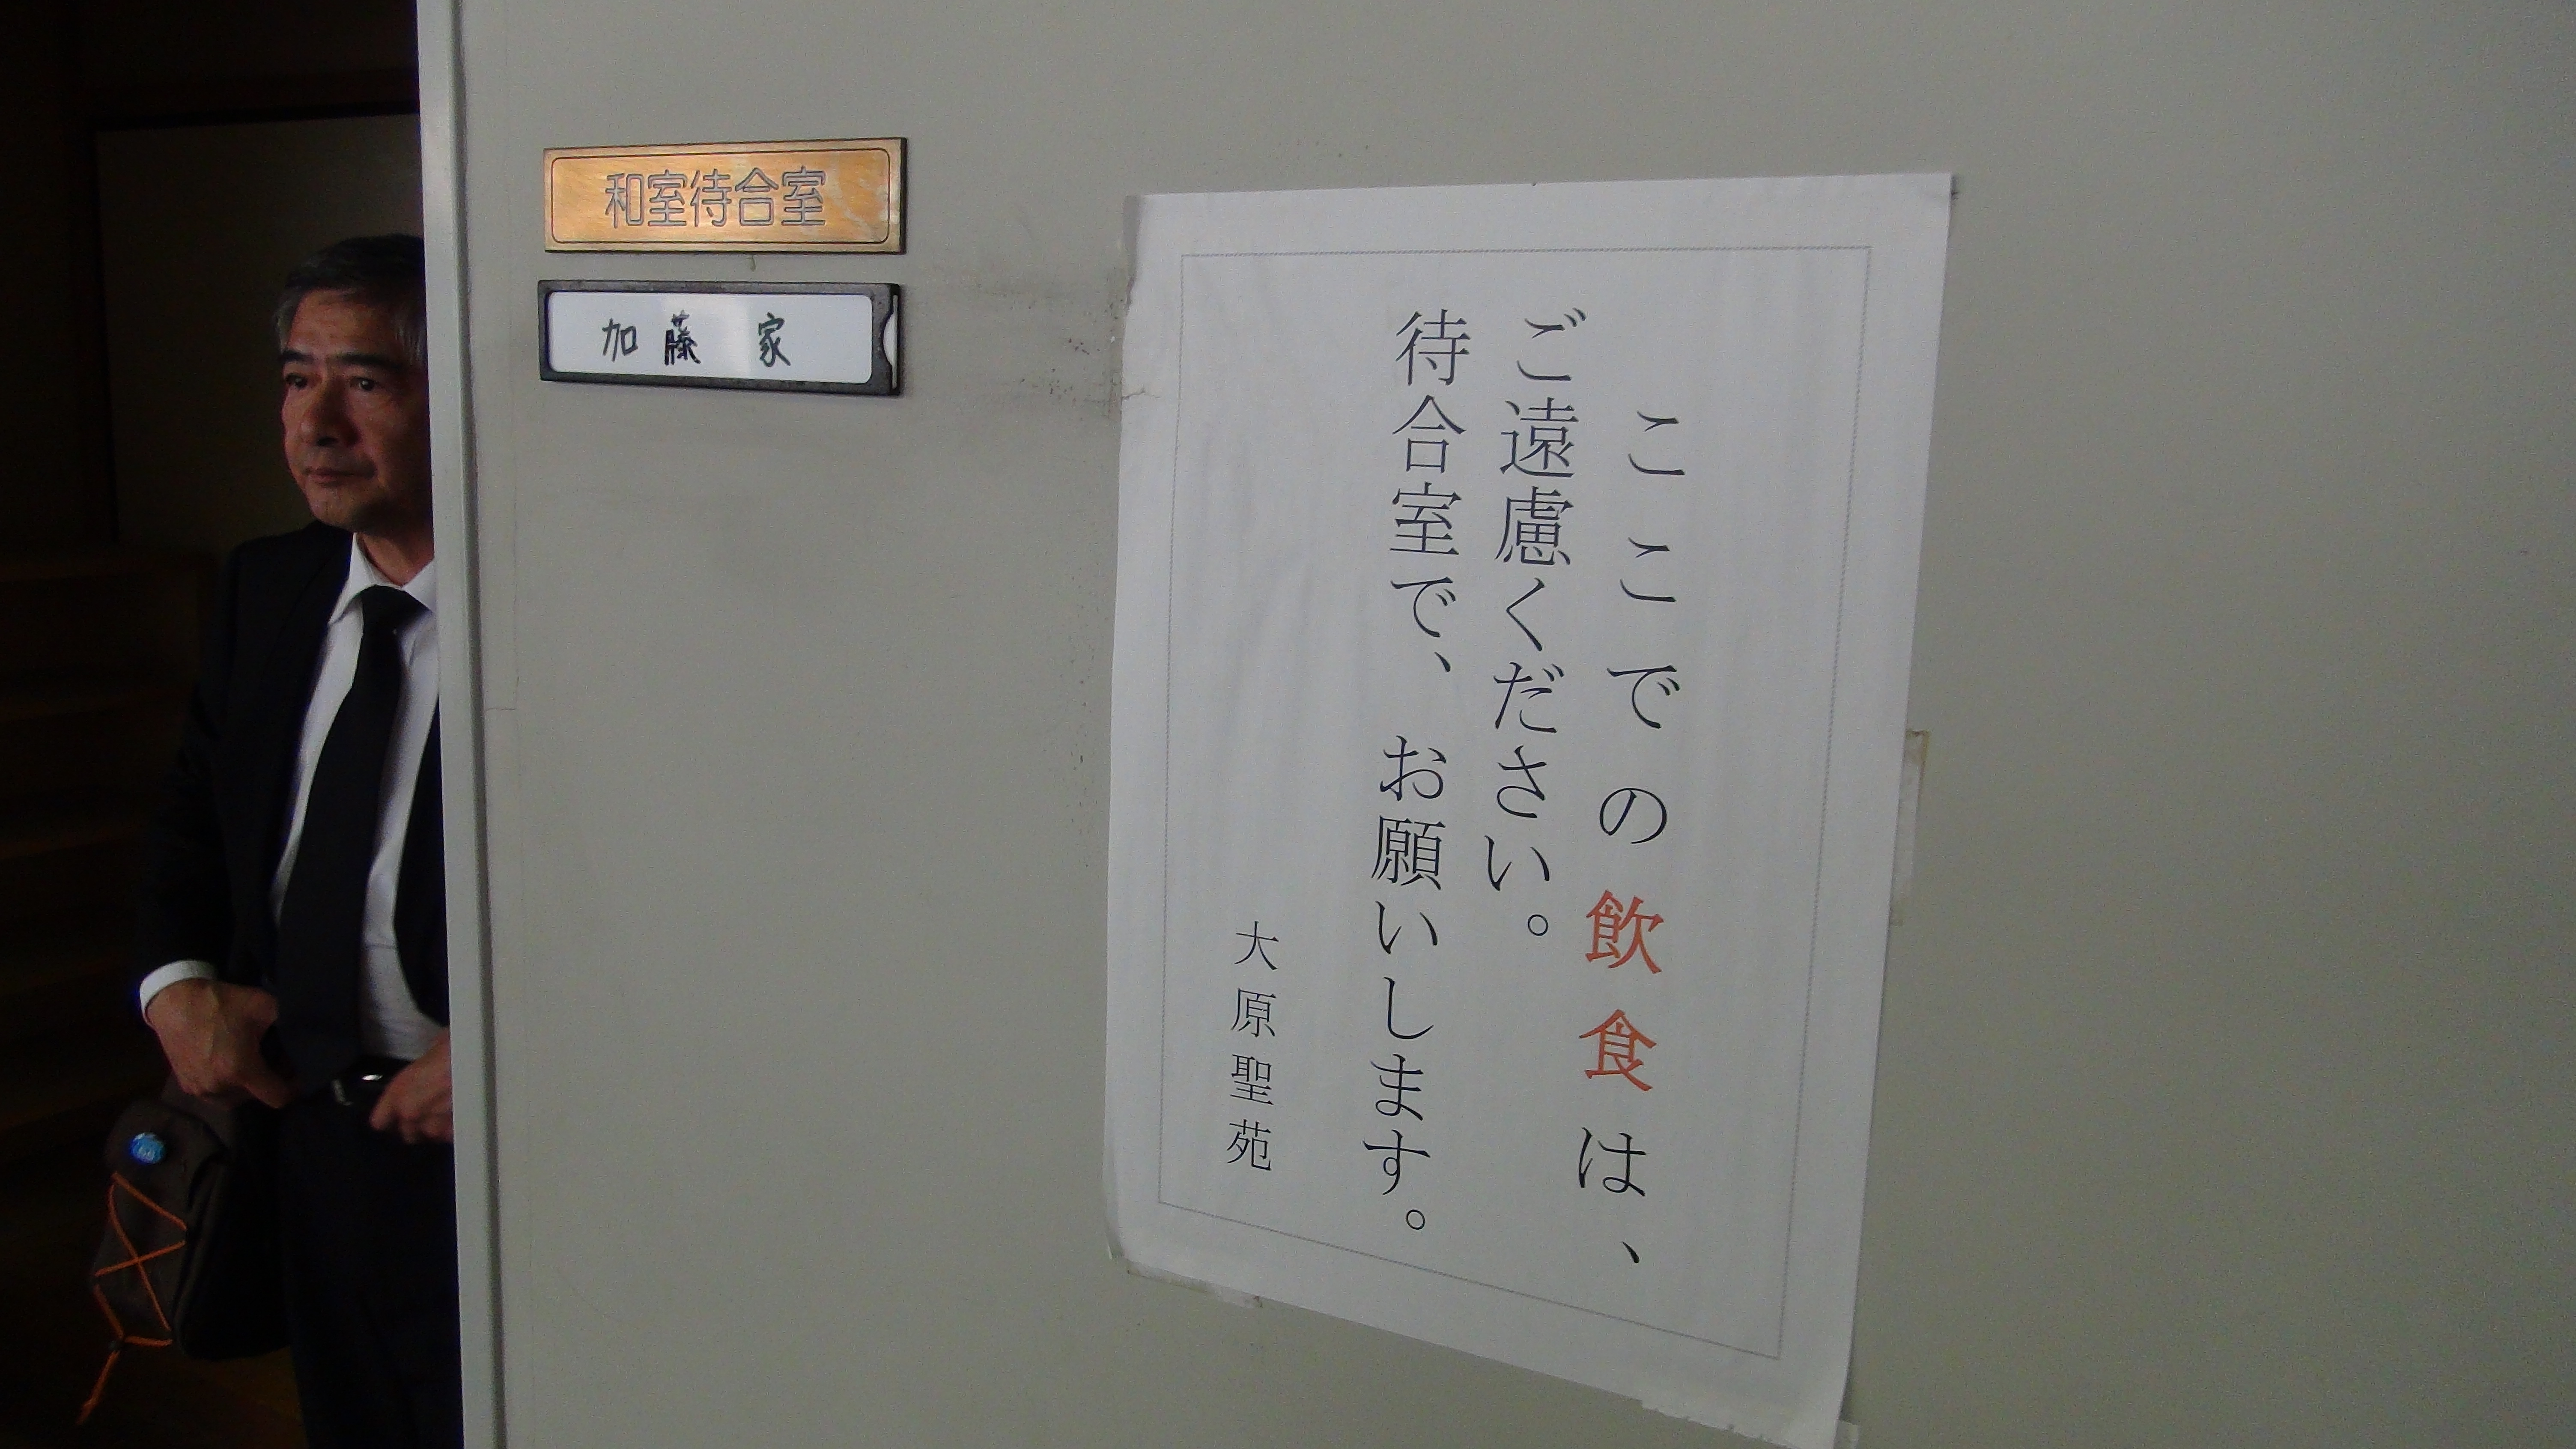 和室待合室
加藤 家
ここでの飲食は、
ご遠慮ください。
待合室で、お願いします。
大原聖苑